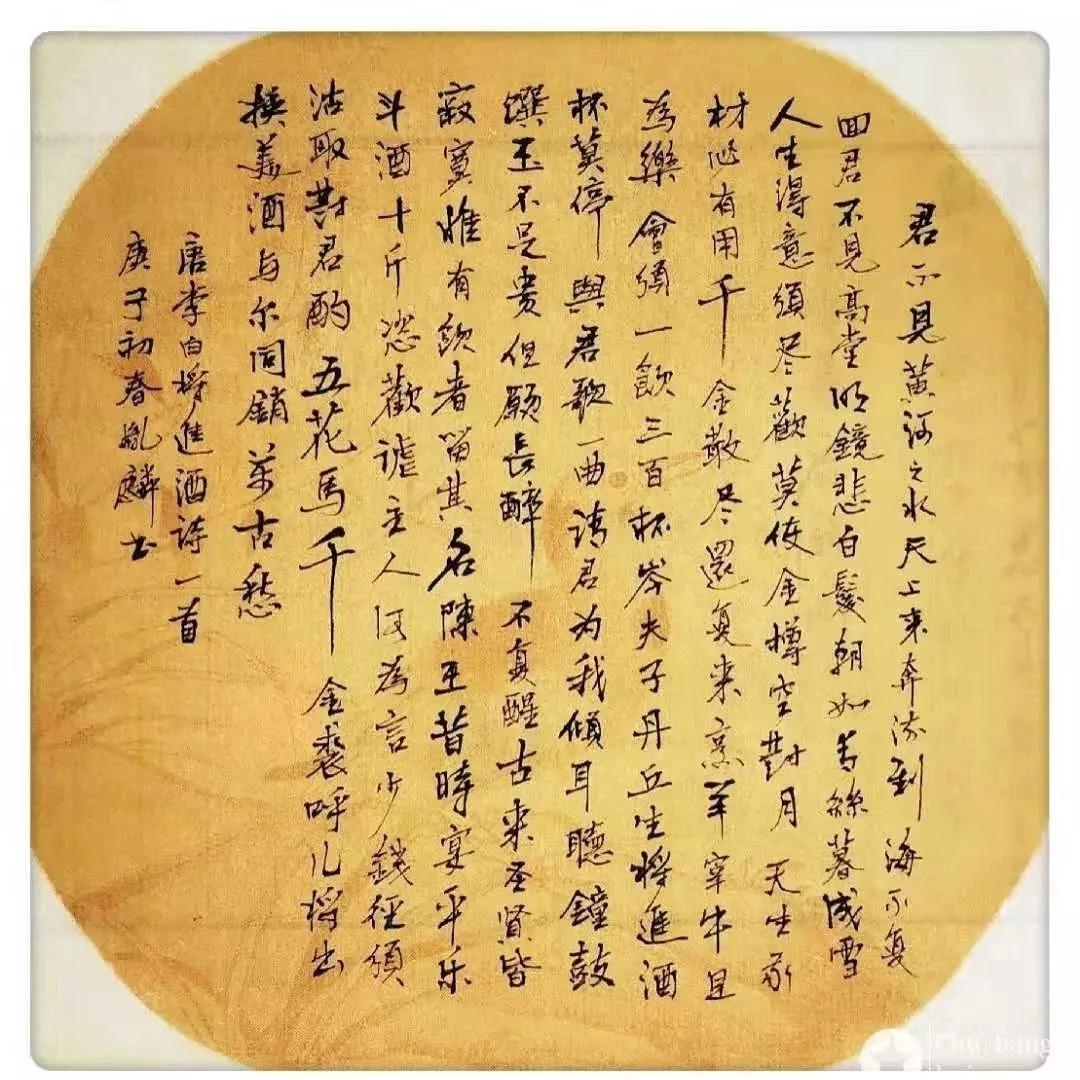 君不見黃河之水天上来奔流到海不复
回君不見髙堂明鏡悲白髮朝如青絲暮成雪
人生得意須尽歡莫使金樽空對月天生我
材必有用千金散尽還复来烹羊宰牛且
為樂會須一飲三百杯岑夫子丹丘生将進酒
杯莫停與君歌一曲请君为我傾耳聽鐘鼓
饌玉不足贵但願長醉不复醒古来圣賢皆
寂寞惟有飲者留其名陳王昔時宴平乐
斗酒十斤恣歡謔主人何為言少錢徑須
沽取對君酌五花馬千金裘呼儿将出
换美酒与尔同銷萬古愁
唐李白将進酒诗一首
庚子初春胤麟书